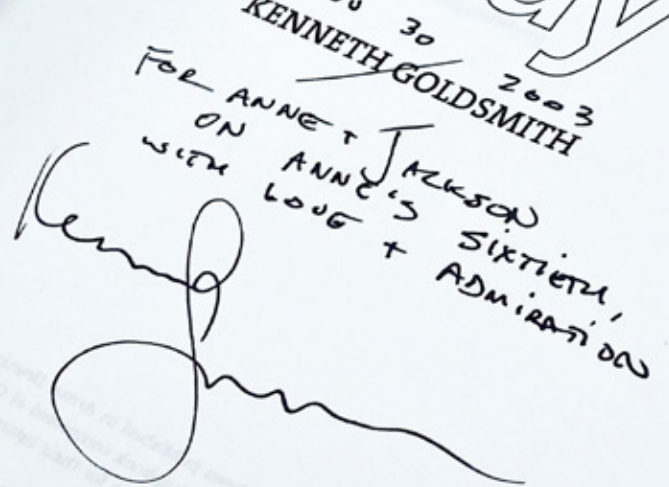 ay
30
2003
KENNETH GOLDSMITH
FOR ANNE + JACKSON
ON ANNE'S SIXTIETH,
WITH LOVE + ADMIRATION
Kenny G